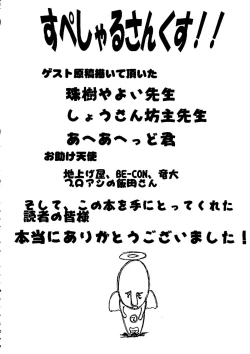 すぺしゃるさんくす!!
ゲスト原稿描いて頂いた
珠樹やよい先生
しょうさん坊主先生
あへあへっど君
お助け天使
地上げ屋、BE-CON、竜大
プロアシの飯岡さん
そして、この本を手にとってくれた
読者の皆様
本当にありがとうございました!